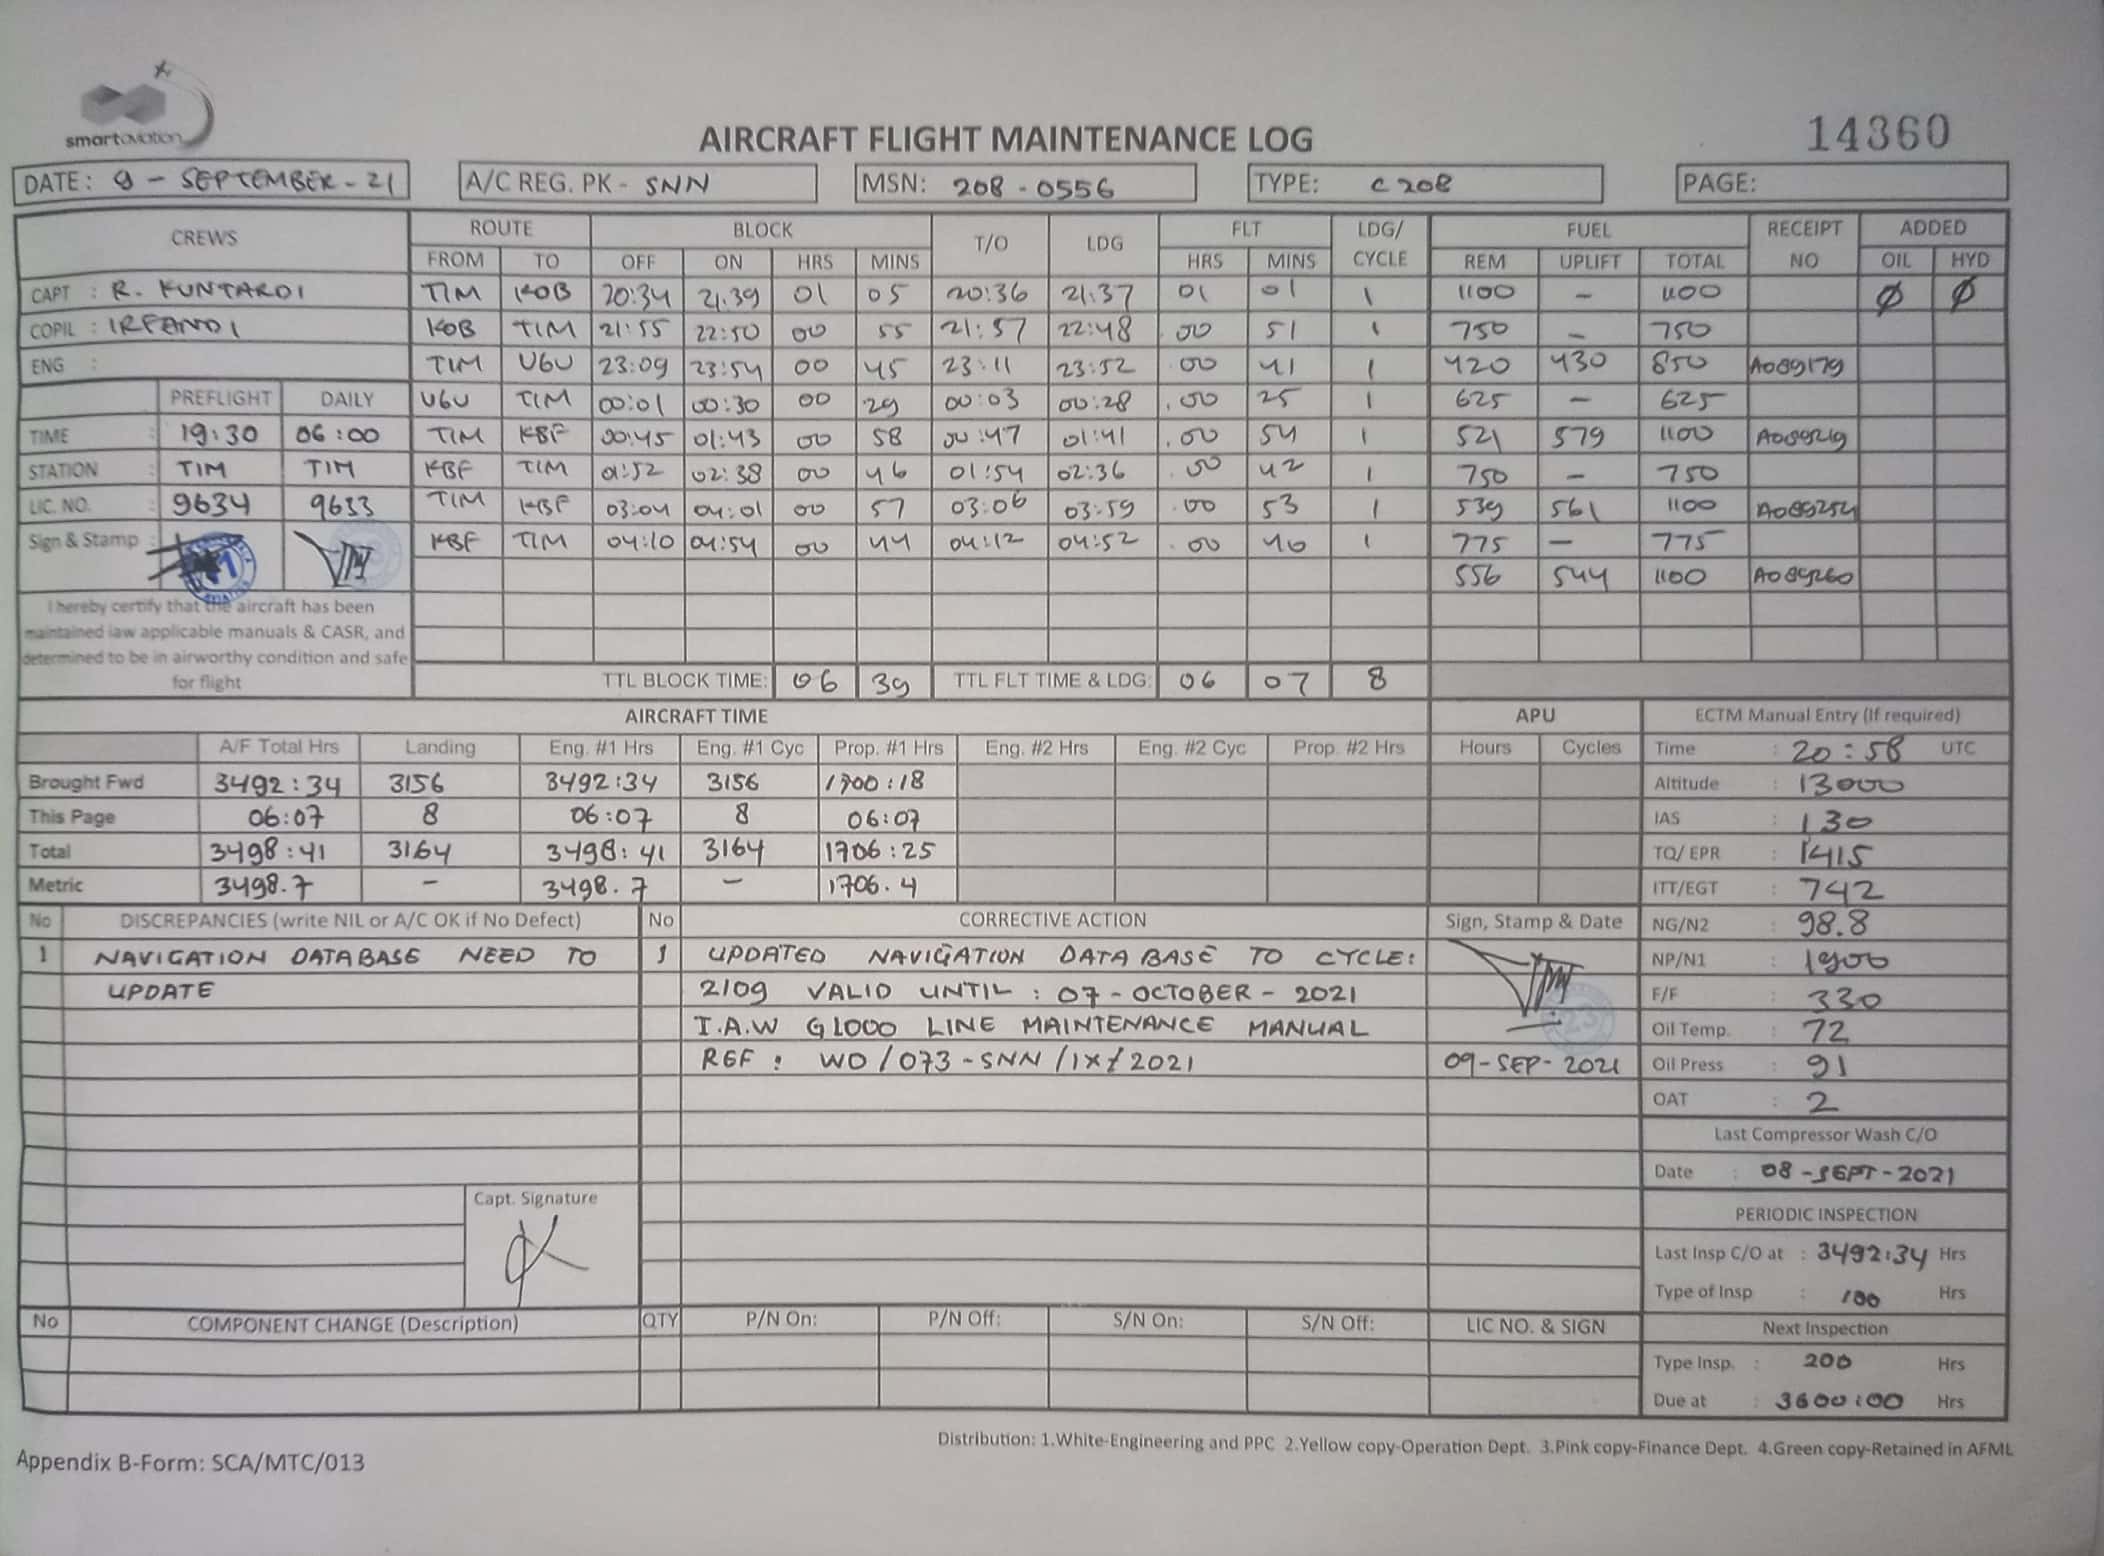 smartaviation
AIRCRAFT FLIGHT MAINTENANCE LOG
14360
DATE: 9 - SEPTEMBER - 21 A/C REG. PK - SNN MSN: 208 - 0556 TYPE: C208 PAGE:
CREWS ROUTE BLOCK T/O LDG FLT LDG/ CYCLE FUEL RECEIPT NO ADDED
FROM TO OFF ON HRS MINS HRS MINS REM UPLIFT TOTAL OIL HYD
CAPT : R. KUNTARDI TIM KOB 20:34 21.39 01 05 20:36 21:37 01 01 1 1100 - 1100 Ø Ø
COPIL : IRFANDI KOB TIM 21:55 22:50 00 55 21:57 22:48 .00 51 1 750 - 750
ENG : TIM UGU 23:09 23:54 00 45 23:11 23:52 .00 41 1 420 430 850 A089179
PREFLIGHT DAILY UGU TIM 00:01 00:30 00 29 00:03 00:28 .00 25 1 625 - 625
TIME : 19:30 06:00 TIM KBF 00:45 01:43 00 58 00:47 01:41 .00 54 1 521 579 1100 A089219
STATION : TIM TIM KBF TIM 01:52 02:38 00 46 01:54 02:36 .00 42 1 750 - 750
LIC. NO. : 9634 9633 TIM KBF 03:04 04:01 00 57 03:06 03:59 .00 53 1 539 561 1100 A089254
Sign & Stamp : KBF TIM 04:10 04:54 00 44 04:12 04:52 .00 40 1 775 - 775
556 544 1100 A089260
I hereby certify that the aircraft has been
maintained iaw applicable manuals & CASR, and
determined to be in airworthy condition and safe
for flight
TTL BLOCK TIME: 06 39 TTL FLT TIME & LDG: 06 07 8
AIRCRAFT TIME APU ECTM Manual Entry (If required)
A/F Total Hrs Landing Eng. #1 Hrs Eng. #1 Cyc Prop. #1 Hrs Eng. #2 Hrs Eng. #2 Cyc Prop. #2 Hrs Hours Cycles Time : 20:58 UTC
Brought Fwd 3492:34 3156 3492:34 3156 1700:18 Altitude : 13000
This Page 06:07 8 06:07 8 06:07 IAS : 130
Total 3498:41 3164 3498:41 3164 1706:25 TQ/ EPR : 1415
Metric 3498.7 - 3498.7 - 1706.4 ITT/EGT : 742
No DISCREPANCIES (write NIL or A/C OK if No Defect) No CORRECTIVE ACTION Sign, Stamp & Date NG/N2 98.8
1 NAVIGATION DATABASE NEED TO 1 UPDATED NAVIGATION DATA BASE TO CYCLE: NP/N1 : 1900
UPDATE 2109 VALID UNTIL : 07 - OCTOBER - 2021 F/F : 330
I.A.W G1000 LINE MAINTENANCE MANUAL Oil Temp. : 72
REF : WO/073-SNN/IX/2021 09-SEP-2021 Oil Press : 91
OAT : 2
Last Compressor Wash C/O
Date : 08-SEPT-2021
Capt. Signature
PERIODIC INSPECTION
Last Insp C/O at : 3492:34 Hrs
Type of Insp : 100 Hrs
No COMPONENT CHANGE (Description) QTY P/N On: P/N Off: S/N On: S/N Off: LIC NO. & SIGN Next Inspection
Type Insp. : 200 Hrs
Due at : 3600:00 Hrs
Distribution: 1.White-Engineering and PPC 2.Yellow copy-Operation Dept. 3.Pink copy-Finance Dept. 4.Green copy-Retained in AFML
Appendix B-Form: SCA/MTC/013